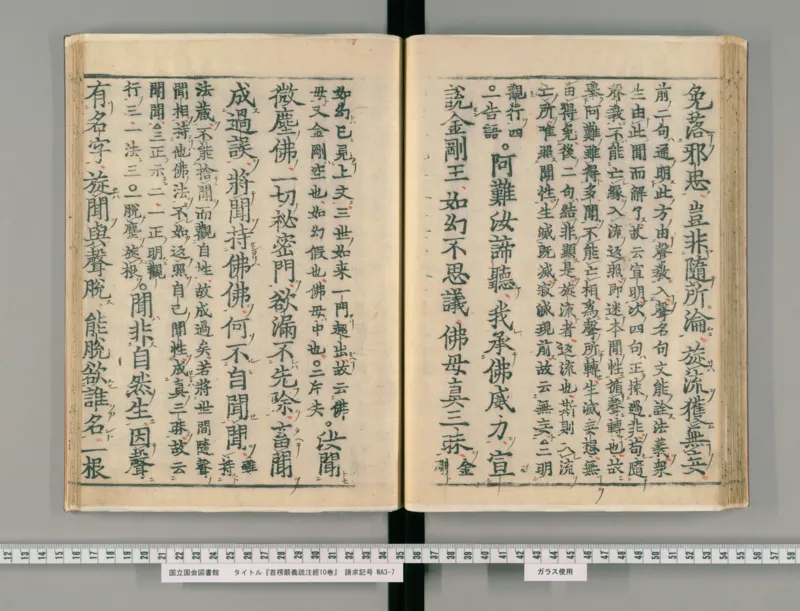 免落邪思 豈非隨所淪 旋流獲無妄
前二句通明此方由聲敎入聲名句文能詮法義衆
生由此聞而解了故云宣明次四句正揀過非苟隨
聲敎不能亡緣入流返照即迷本聞性循聲轉也故
擧阿難雖得多聞不能亡相為聲所轉生滅妄想無
由得免後二句結非顯是旋流者返流也斯則入流
亡所唯照聞性生滅既滅寂滅現前故云無妄○二明
觀行四
○一告語 。阿難汝諦聽 我承佛威力 宣
說金剛王 如幻不思議 佛母真三昧 金剛
如幻已見上文三世如来一門超出故云佛
母又金剛空也如幻假也佛母中也○二斥失 。汝聞
微塵佛 一切祕密門 欲漏不先除 畜聞
成過誤 將聞持佛佛 何不自聞聞 雖持
法藏不能捨聞而觀自性故成過矣若將世間隨聲
聞相持他佛法不如返照自己聞性成真三昧故云
聞聞○三正示二一正明觀
行三一法三○一脫塵旋根 。聞非自然生 因聲
有名字 旋聞與聲脫 能脫欲誰名 一根
国立国会図書館 タイトル『首楞嚴義疏注經10巻』 請求記号 WA3-7
ガラス使用